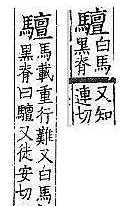 驙
白馬
黑脊
又知
連切
驙
馬載重行難又白馬
黑脊曰驙又徒安切